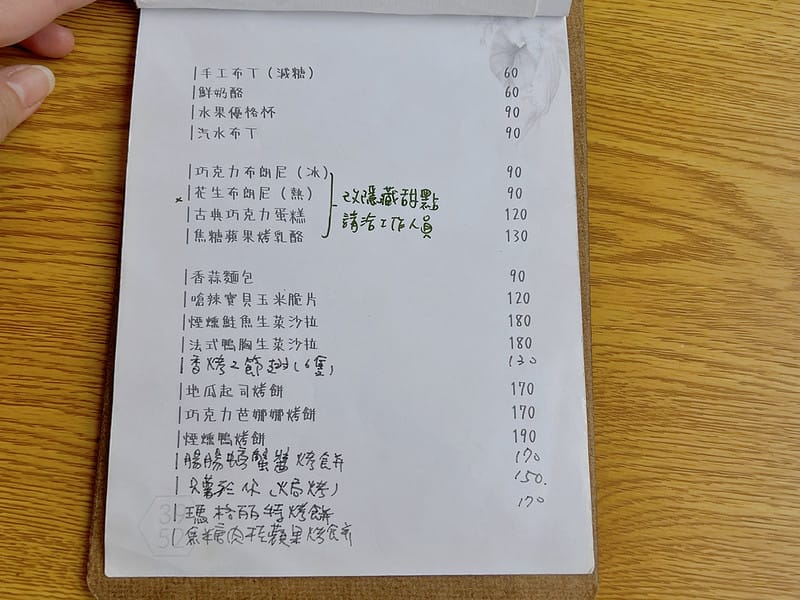 |手工布丁（減糖） 60
|鮮奶酪 60
|水果優格杯 90
|汽水布丁 90
|巧克力布朗尼（冰） 90
x |花生布朗尼（熱） 90
改隱藏甜點
|古典巧克力蛋糕 120
請洽工作人員
|焦糖蘋果烤乳酪 130
|香蒜麵包 90
|嗆辣寶貝玉米脆片 120
|煙燻鮭魚生菜沙拉 180
|法式鴨胸生菜沙拉 180
|香烤2節翅(6隻) 130
|地瓜起司烤餅 170
|巧克力芭娜娜烤餅 170
|煙燻鴨烤餅 190
|腸腸螃蟹醬烤餅 170
(焗烤) 150.
|瑪格麗特烤餅 170
|焦糖肉桂蘋果烤餅